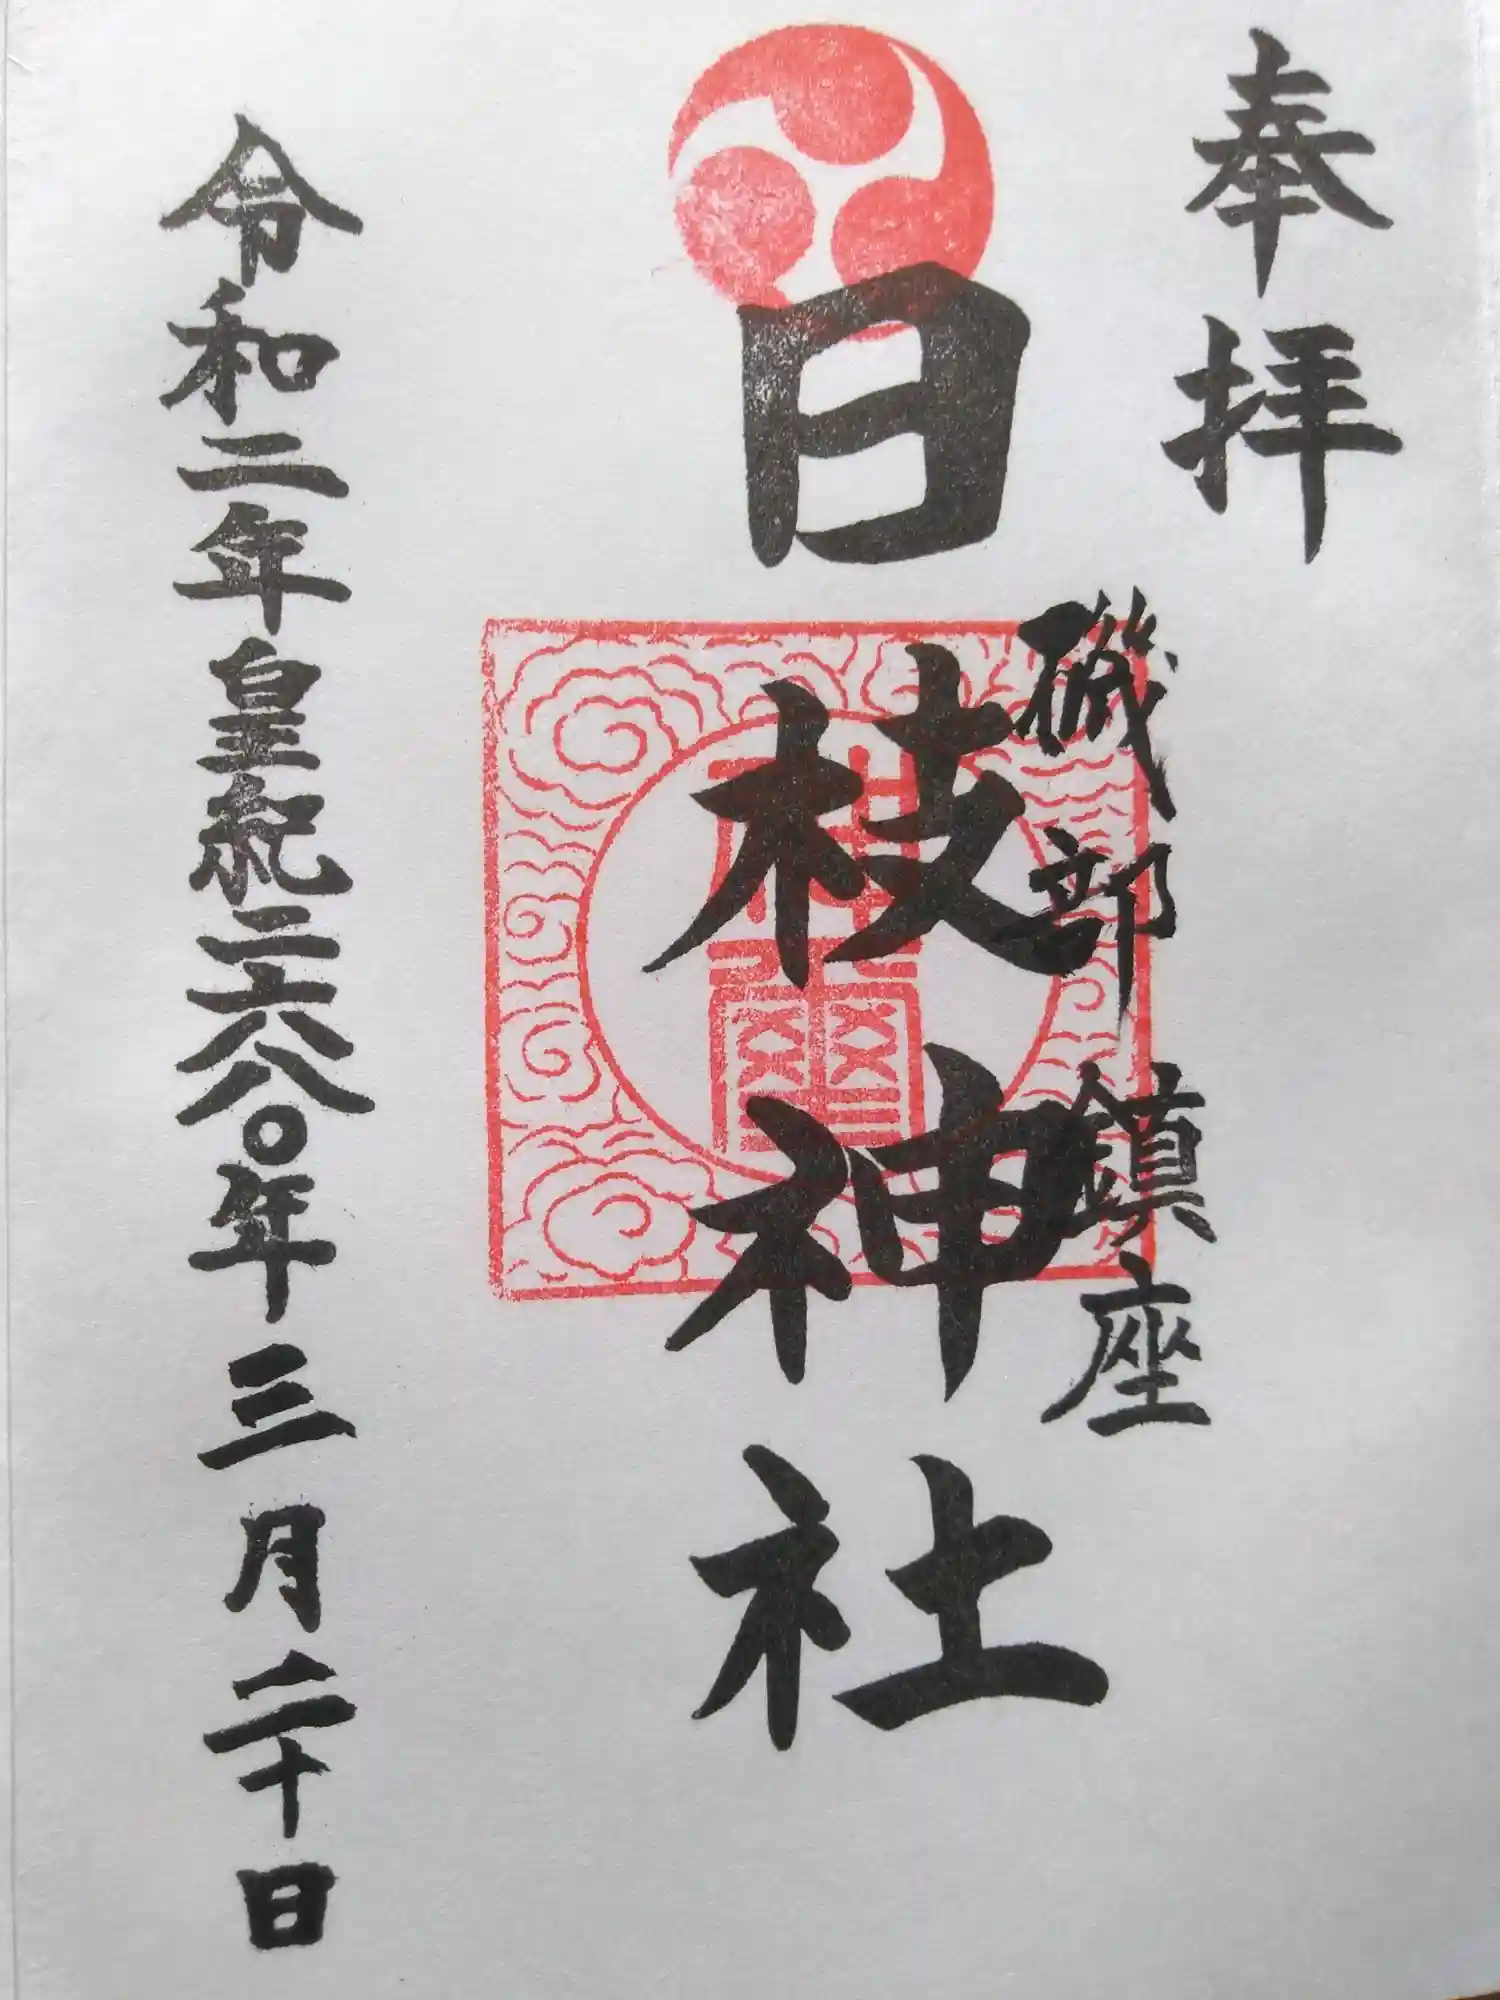 奉拝
磯部鎮座
日枝神社
令和二年皇紀二六八〇年三月二十日